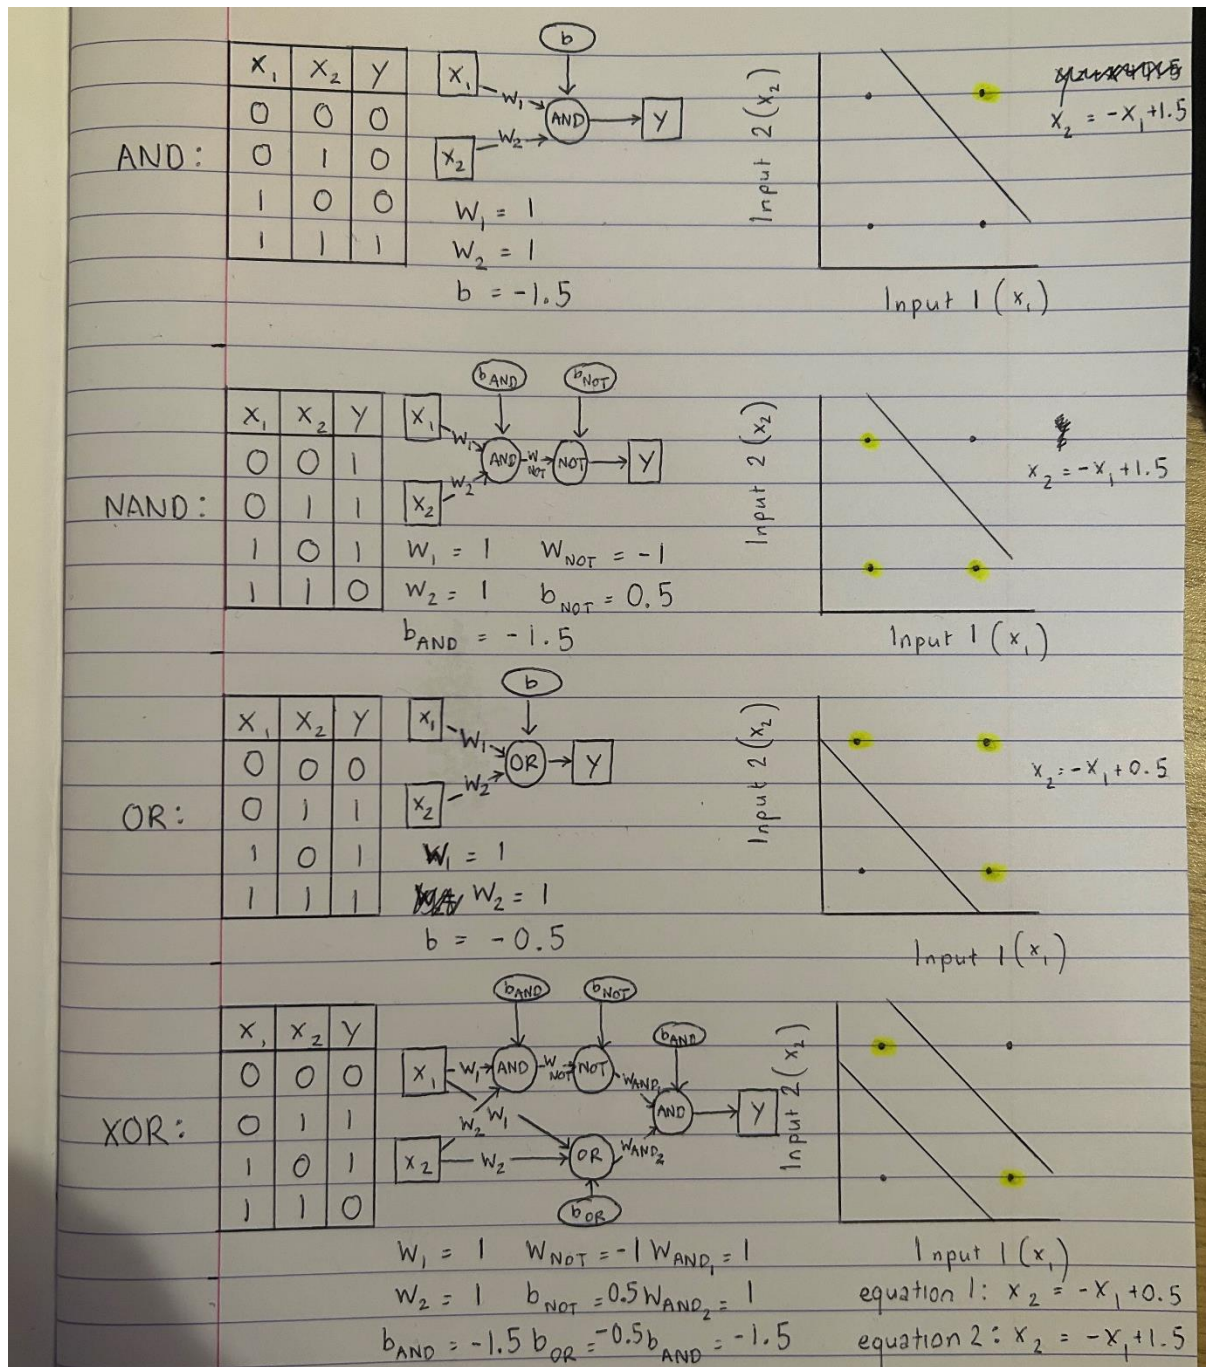 AND:
X₁ X₂ Y
0 0 0
0 1 0
1 0 0
1 1 1
b
X₁
W₁
AND
Y
W₂
X₂
W₁ = 1
W₂ = 1
b = -1.5
Input 2 (x₂)
Input 1 (x₁)
x₂ = -x₁+1.5
NAND:
X₁ X₂ Y
0 0 1
0 1 1
1 0 1
1 1 0
b_AND b_NOT
X₁
W₁
AND W_NOT NOT Y
W₂
X₂
W₁ = 1 W_NOT = -1
W₂ = 1 b_NOT = 0.5
b_AND = -1.5
Input 2 (x₂)
Input 1 (x₁)
x₂ = -x₁+1.5
OR:
X₁ X₂ Y
0 0 0
0 1 1
1 0 1
1 1 1
b
X₁
W₁
OR Y
W₂
X₂
W₁ = 1
W₂ = 1
b = -0.5
Input 2 (x₂)
Input 1 (x₁)
x₂ = -x₁+0.5
XOR:
X₁ X₂ Y
0 0 0
0 1 1
1 0 1
1 1 0
b_AND b_NOT
b_AND
X₁ W₁ AND W_NOT NOT
W_AND₁
W₂ W₁
AND Y
X₂ W₂ OR W_AND₂
b_OR
W₁ = 1 W_NOT = -1 W_AND₁ = 1
W₂ = 1 b_NOT = 0.5 W_AND₂ = 1
b_AND = -1.5 b_OR = -0.5 b_AND = -1.5
Input 2 (x₂)
Input 1 (x₁)
equation 1: x₂ = -x₁+0.5
equation 2: x₂ = -x₁+1.5